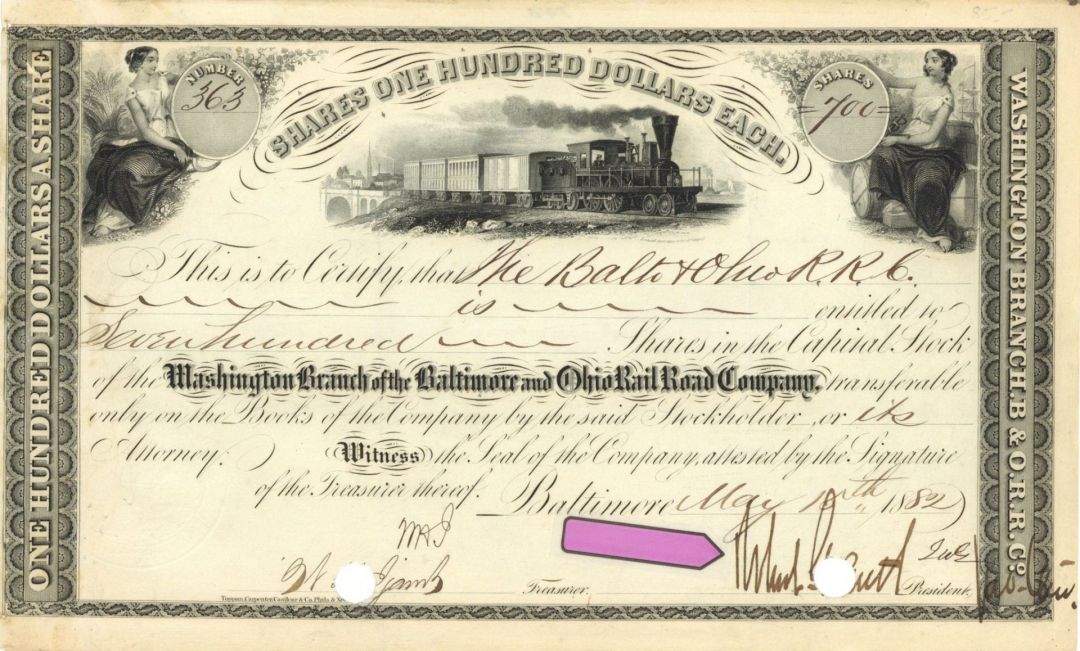 ONE HUNDRED DOLLARS A SHARE
NUMBER
363
SHARES ONE HUNDRED DOLLARS EACH.
SHARES
=700=
WASHINGTON BRANCH. B & O. R. R. Co.
This is to Certify, that The Balto & Ohio R. R. C.
is entitled to
Seven hundred Shares in the Capital Stock
of the Washington Branch of the Baltimore and Ohio Rail Road Company, transferable
only on the Books of the Company by the said Stockholder, or its
Attorney. Witness the Seal of the Company, attested by the Signature
of the Treasurer thereof. Baltimore May 1882
Treasurer. President.
Toppan, Carpenter, Casilear & Co. Phila &